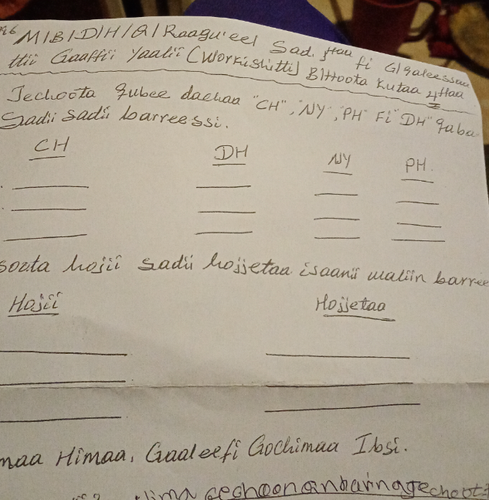 M/B/D/H/Q/ Raagu'eel Sad. ffaa fi G/galeessaa
ttii Gaaffii Yaalii (Workishiitti) B/Htoota kutaa 4ffaa
Jechoota Qubee dachaa "CH", "NY", "PH" Fi "DH" qaba
Sadii sadii barreessi.
CH DH NY PH
hojii sadii hojjetaa isaanii waliin barree
Hojii Hojjetaa
maa Himaa, Gaaleefi Gochimaa Ibsi.